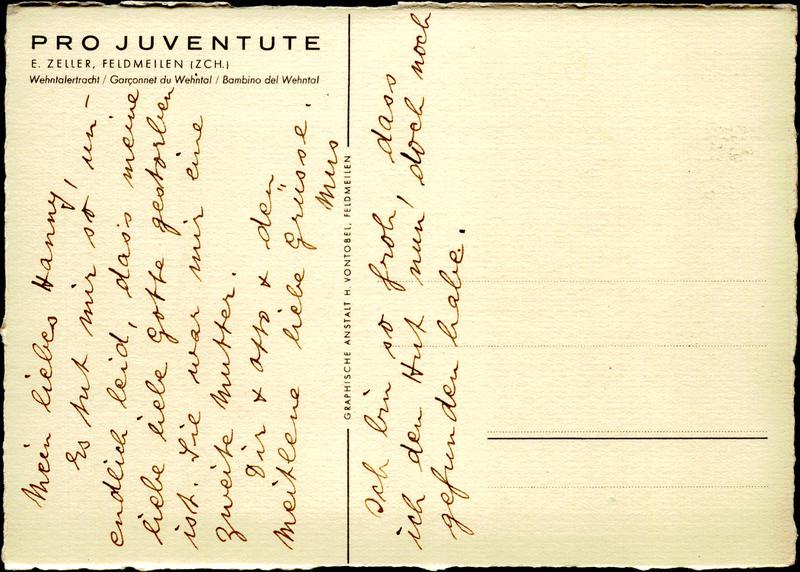 PRO JUVENTUTE
E. ZELLER, FELDMEILEN (ZCH.)
Wehntalertracht / Garçonnet du Wehntal / Bambino del Wehntal
Mein liebes Hanny,
Es tut mir so un-
endlich leid, dass meine
liebe liebe Gotte gestorben
ist. Sie war mir eine
zweite Mutter.
Dir & Otto & den
Meitlene liebe Grüsse.
Mus
GRAPHISCHE ANSTALT H. VONTOBEL, FELDMEILEN
Ich bin so froh, dass
ich den Hut nun, doch noch
gefunden habe.